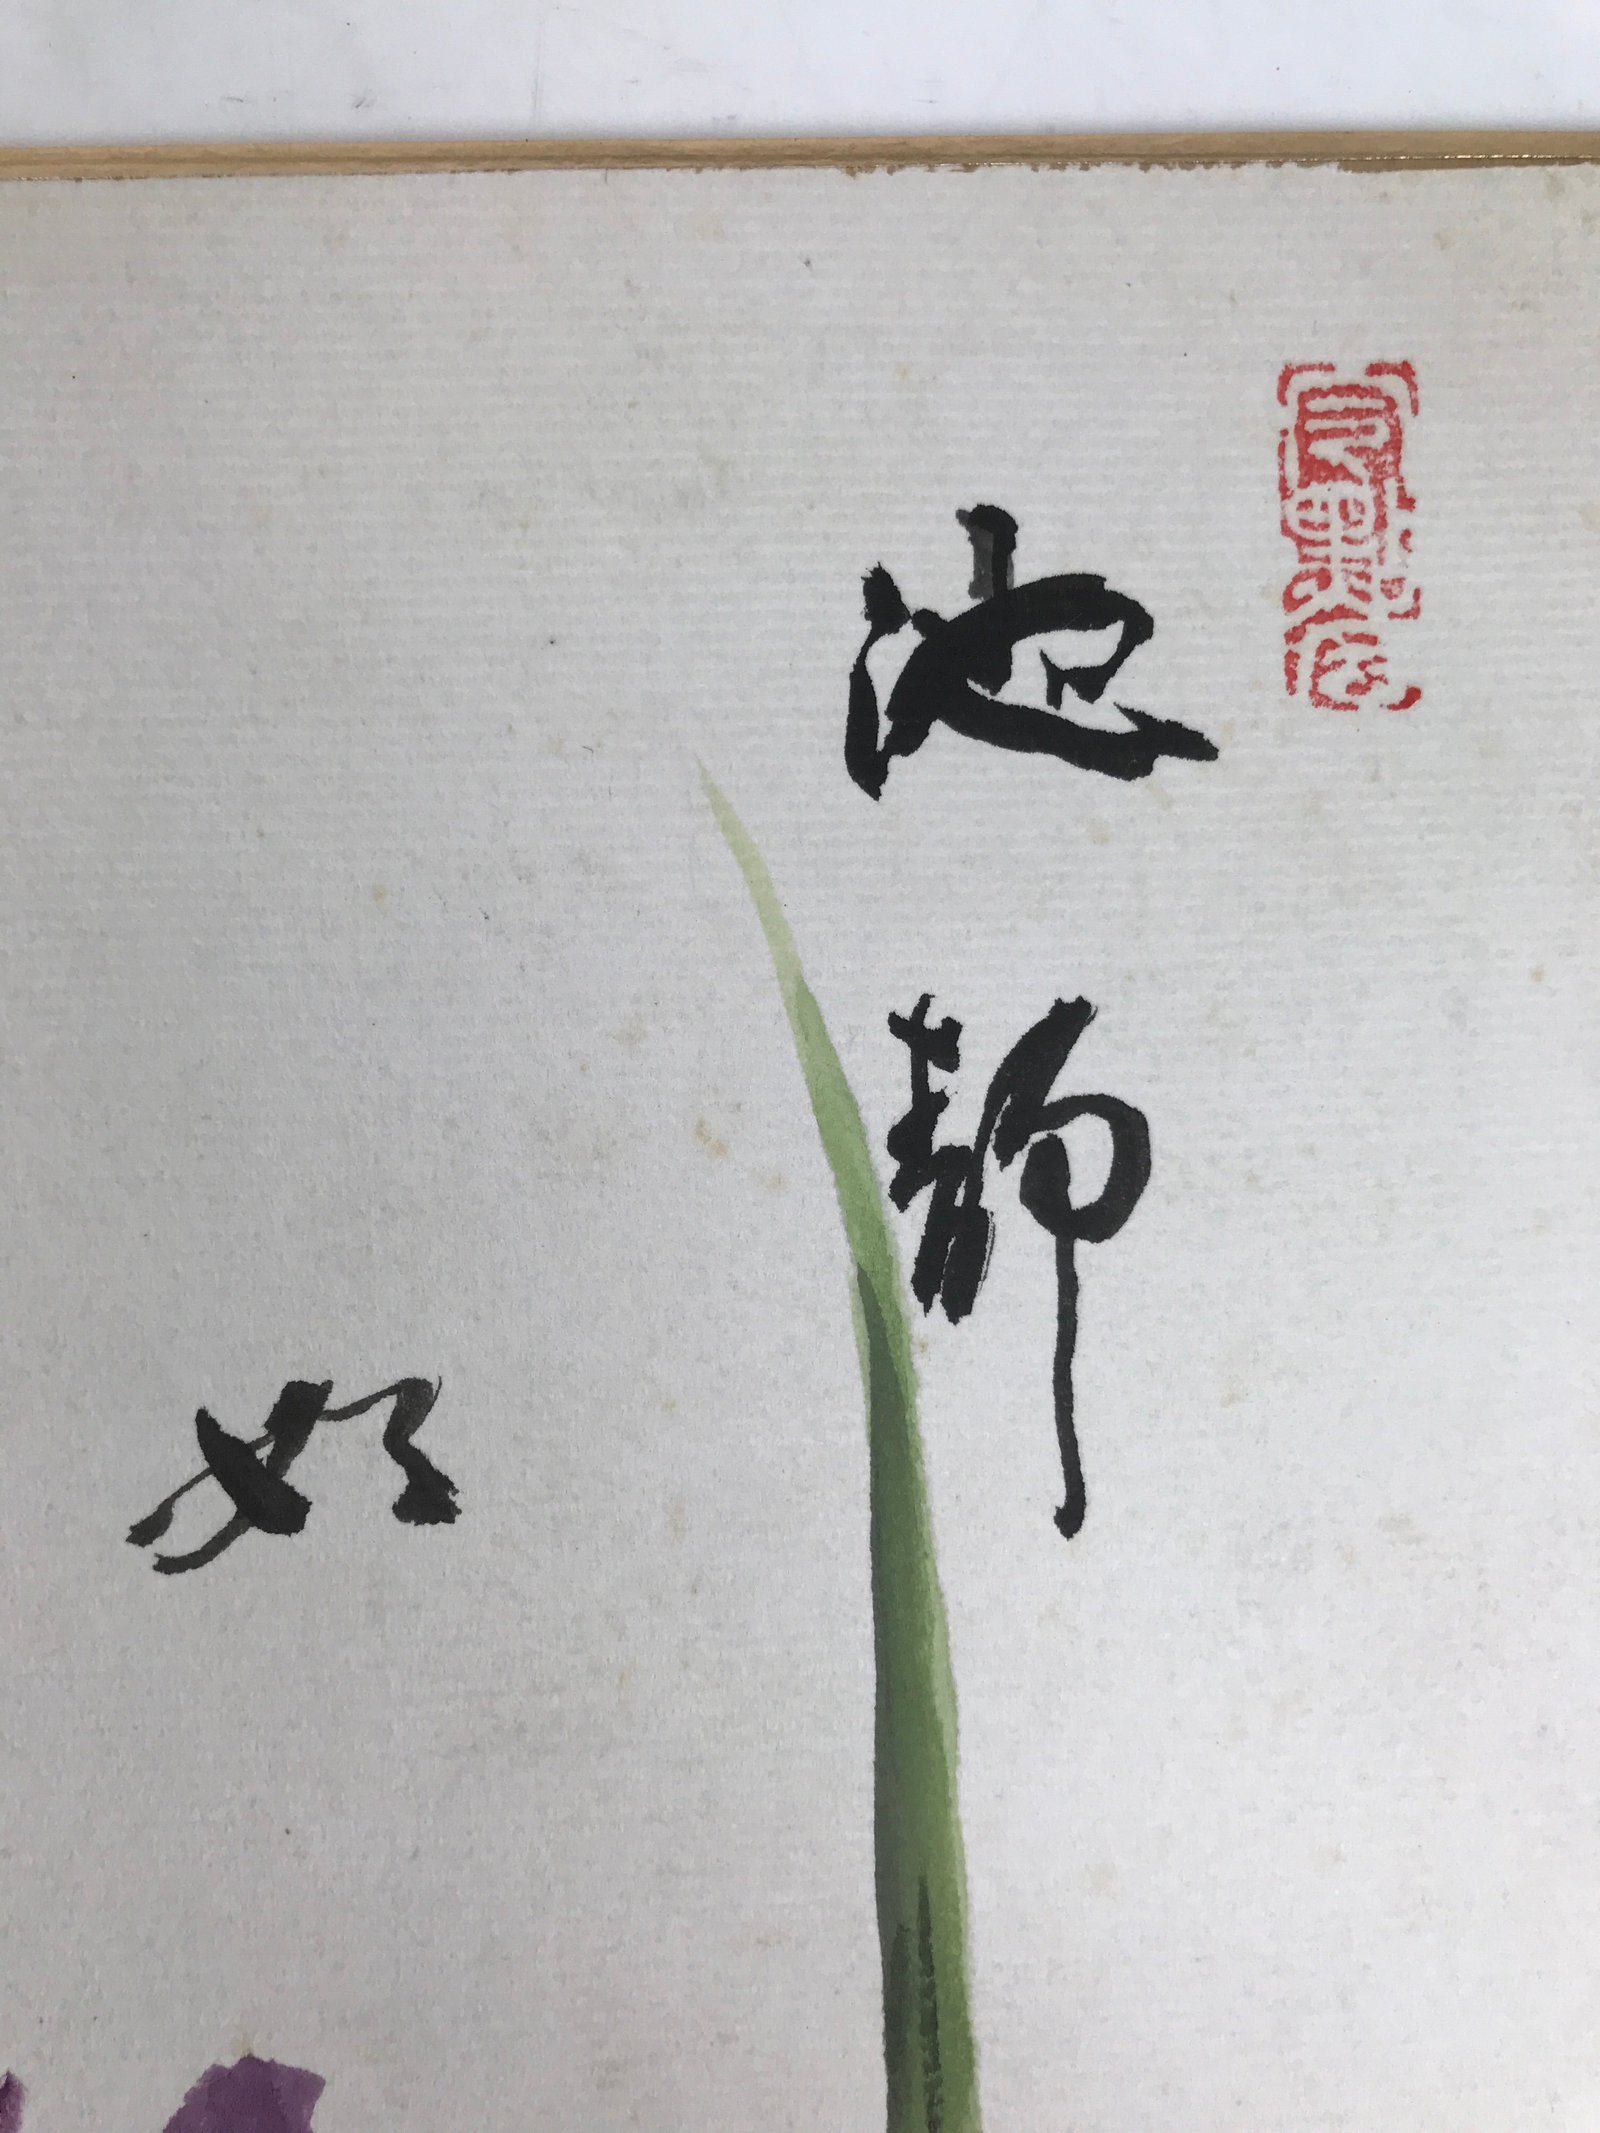 池静
如